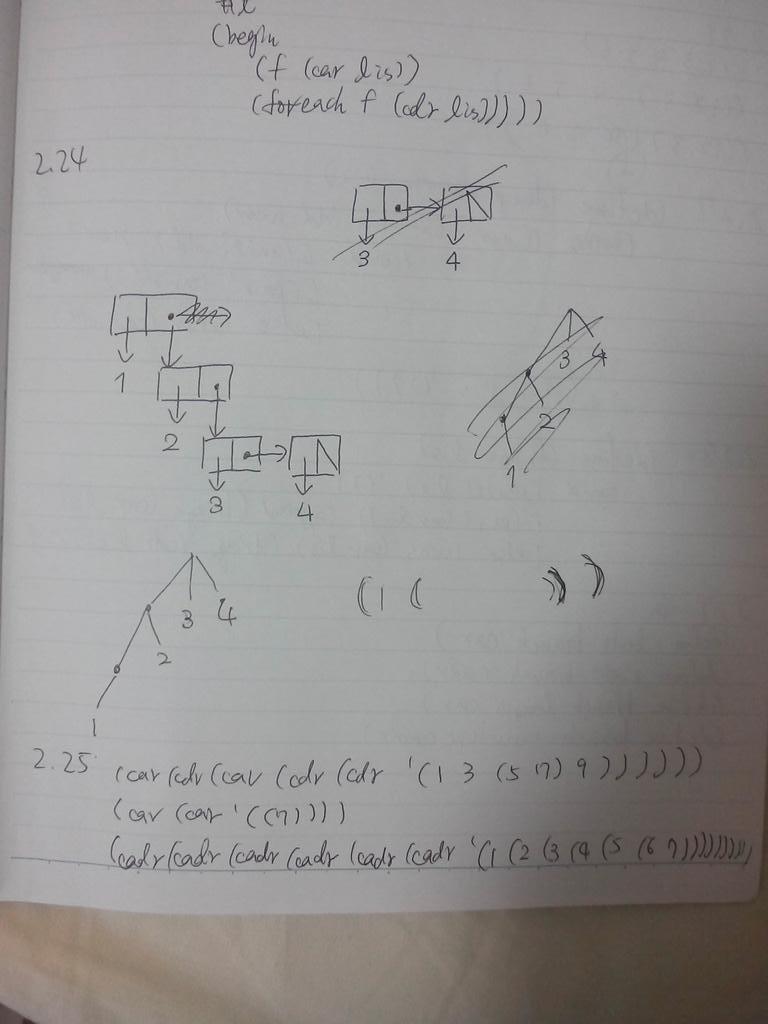 #t
(begin
(f (car lis))
(foreach f (cdr lis)))))
2.24
3 4
1
2
3 4
3 4
2
1
3 4
2
1
(1 ( ))
2.25 (car (cdr (car (cdr (cdr '(1 3 (5 7) 9))))))
(car (car '((7))))
(cadr (cadr (cadr (cadr (cadr (cadr '(1 (2 (3 (4 (5 (6 7))))))))))))